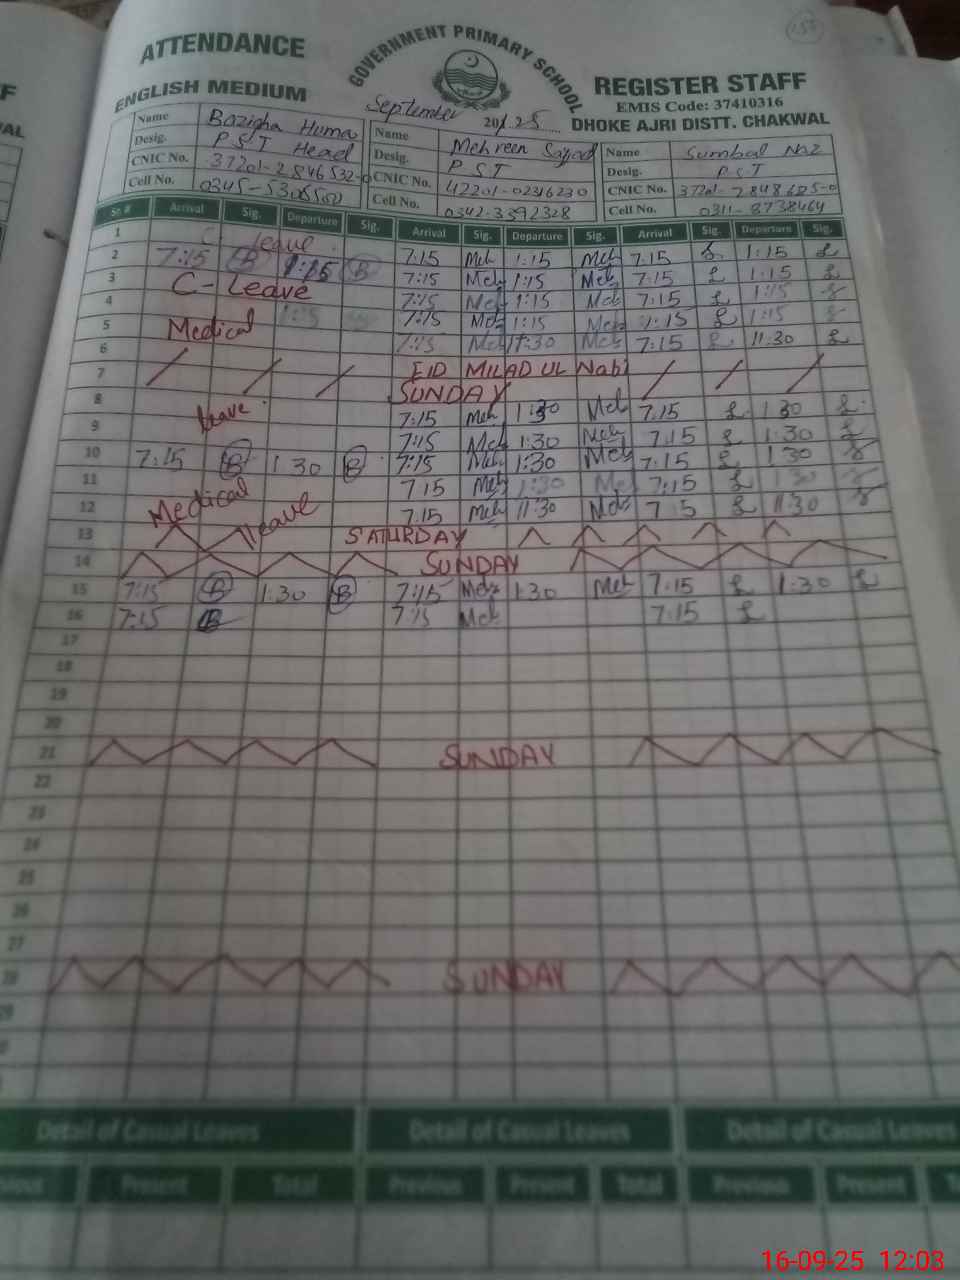 ATTENDANCE
GOVERNMENT PRIMARY SCHOOL
REGISTER STAFF
ENGLISH MEDIUM
EMIS Code: 37410316
September 2025
DHOKE AJRI DISTT. CHAKWAL
Name Bazigha Huma Name Mehreen Sajjad Name Sumbal Naz
Desig. P S T Head Desig. P S T Desig. P.S.T
CNIC No. 37201-2846532-0 CNIC No. 42201-02316230 CNIC No.
Cell No. Cell No. 0342-3392328 Cell No. 0311-8738464
Sr. # Arrival Sig. Departure Sig. Arrival Sig. Departure Sig. Arrival Sig. Departure Sig.
1 C- Leave 7:15 Meh 1:15 Meh 7:15 1:15
2 7:15 B 1:15 B 7:15 Meh 1:15 Meh 7:15 1:15
3 C- Leave 7:15 Meh 1:15 Meh 7:15 1:15
4 7:15 Meh 1:15 Meh 7:15 1:15
5 Medical 7:15 Meh 11:30 Meh 7:15 11:30
6 EID MILAD UL Nabi
7 SUNDAY
8 leave 7:15 Meh 1:30 Meh 7:15 1:30
9 7:15 Meh 1:30 Meh 7:15 1:30
10 7:15 B 1:30 B 7:15 Meh 1:30 Meh 7:15 1:30
11 Medical 7:15 Meh 1:30 Meh 7:15 1:30
12 leave 7:15 Meh 11:30 Meh 7:15 11:30
13 SATURDAY
14 SUNDAY
15 7:15 B 1:30 B 7:15 Meh 1:30 Meh 7:15 1:30
16 7:15 B 7:15 Meh 7:15
17
18
19
20
21 SUNDAY
22
23
24
25
26
27
28 SUNDAY
29
Detail of Casual Leaves Detail of Casual Leaves Detail of Casual Leaves
Present Total Previous Present Total Previous Present
16-09-25 12:03